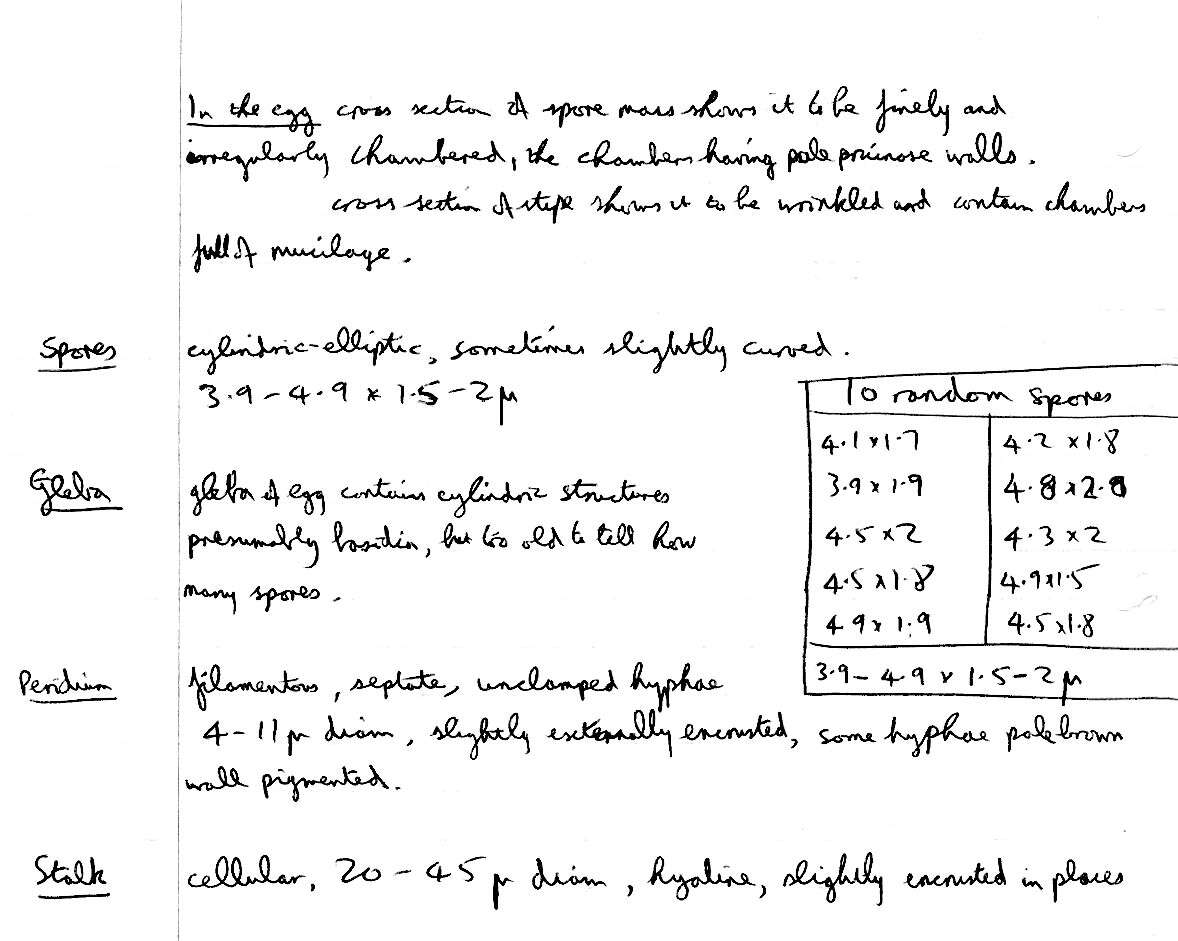 In the egg cross section of spore mass shows it to be finely and
irregularly chambered, the chambers having pale pruinose walls.
cross section of stipe shows it to be wrinkled and contain chambers
full of mucilage.
Spores cylindric-elliptic, sometimes slightly curved.
3.9-4.9 x 1.5-2 μ
10 random spores
4.1 x 1.7 4.2 x 1.8
3.9 x 1.9 4.8 x 2.0
4.5 x 2 4.3 x 2
4.5 x 1.8 4.9 x 1.5
4 9 x 1.9 4.5 x 1.8
3.9-4.9 x 1.5-2 μ
Gleba gleba of egg contains cylindric structures
presumably basidia, but too old to tell how
many spores.
Peridium filamentous, septate, unclamped hyphae
4-11 μ diam, slightly externally encrusted, some hyphae pale brown
wall pigmented.
Stalk cellular, 20-45 μ diam, hyaline, slightly encrusted in places